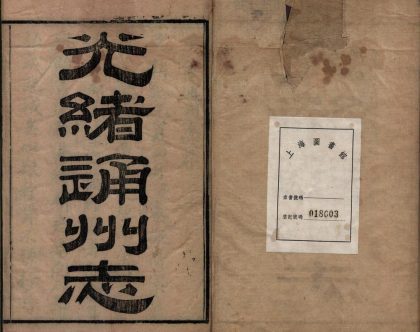 光緒通州志
上海圖書館
索書號碼
登記號碼